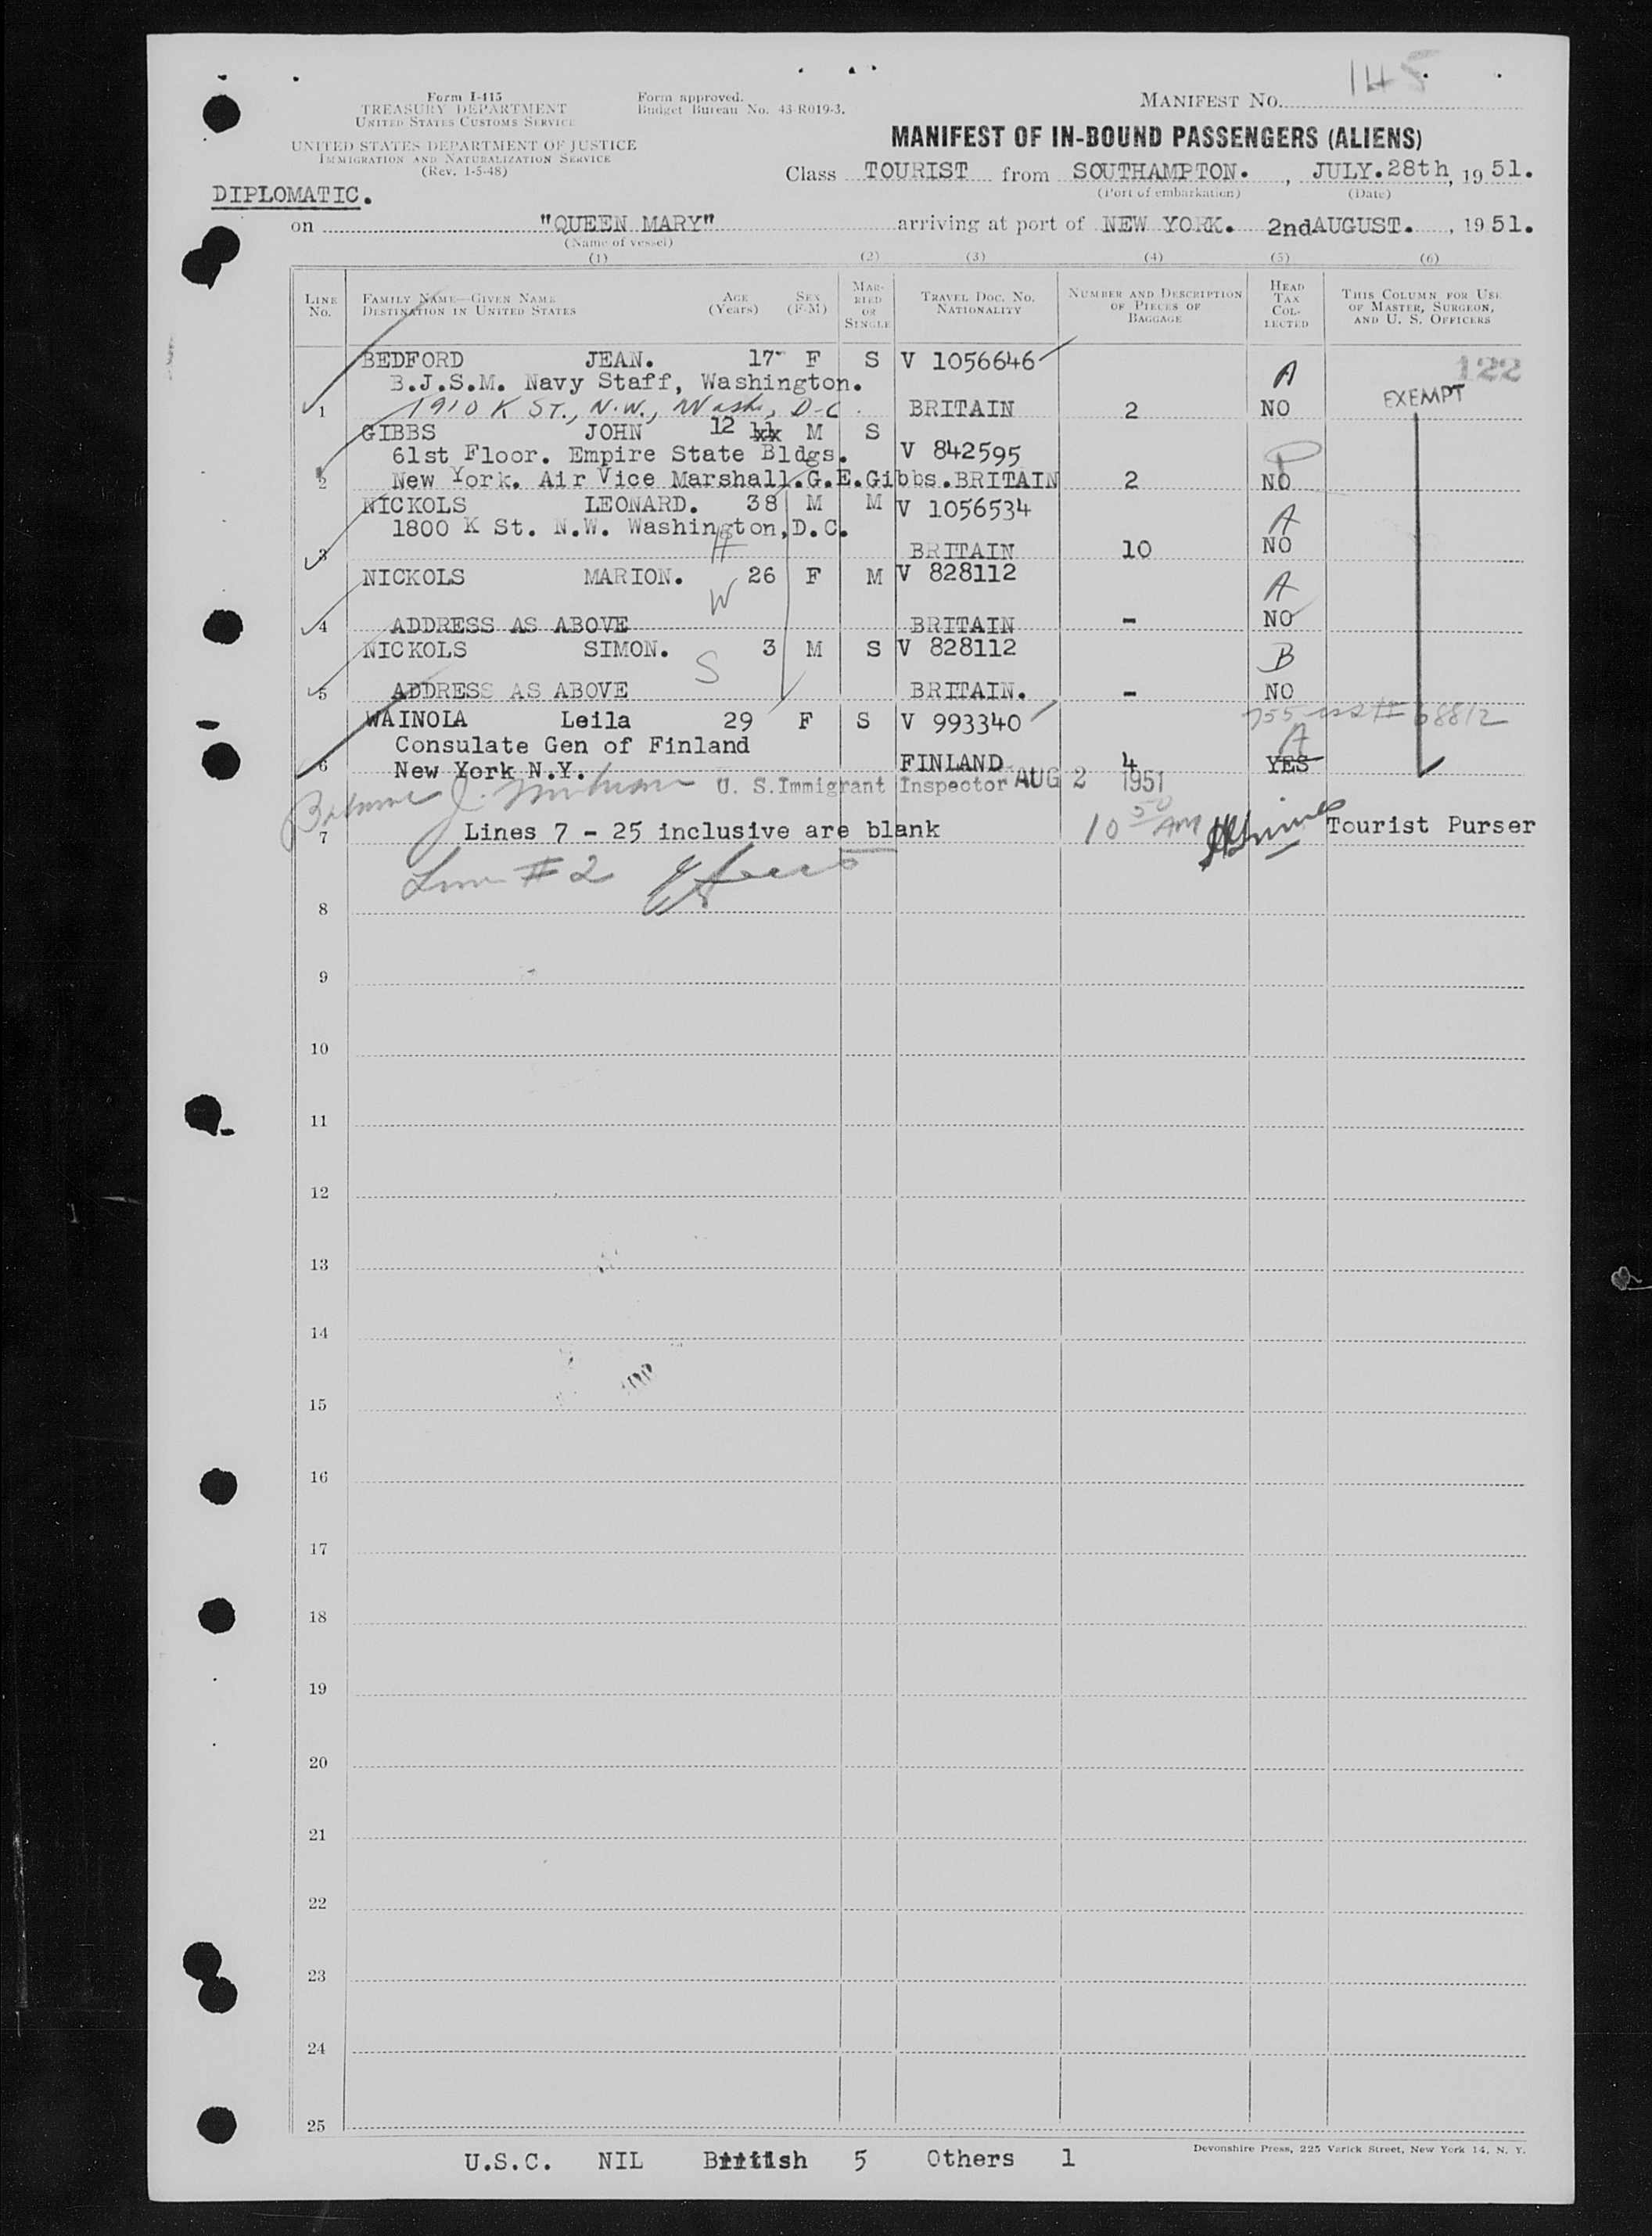 145
Form I-415
TREASURY DEPARTMENT
UNITED STATES CUSTOMS SERVICE
UNITED STATES DEPARTMENT OF JUSTICE
IMMIGRATION AND NATURALIZATION SERVICE
(Rev. 1-5-48)
Form approved.
Budget Bureau No. 43-R019-3.
MANIFEST NO.
MANIFEST OF IN-BOUND PASSENGERS (ALIENS)
Class TOURIST from SOUTHAMPTON. , JULY.28th, 19 51.
(Port of embarkation) (Date)
DIPLOMATIC.
on "QUEEN MARY" arriving at port of NEW YORK. 2ndAUGUST. , 19 51.
(Name of vessel)
(1) (2) (3) (4) (5) (6)
LINE NO.
FAMILY NAME—GIVEN NAME
DESTINATION IN UNITED STATES
AGE (Years)
SEX (F-M)
MARRIED OR SINGLE
TRAVEL DOC. NO.
NATIONALITY
NUMBER AND DESCRIPTION OF PIECES OF BAGGAGE
HEAD TAX COLLECTED
THIS COLUMN FOR USE OF MASTER, SURGEON, AND U. S. OFFICERS
BEDFORD JEAN. 17 F S V 1056646 122
B.J.S.M. Navy Staff, Washington. A
1 1910 K ST., N.W., Wash, D-C. BRITAIN 2 NO EXEMPT
GIBBS JOHN 12 M S
61st Floor. Empire State Bldgs. V 842595
2 New York. Air Vice Marshall.G.E.Gibbs.BRITAIN 2 NO
NICKOLS LEONARD. 38 M M V 1056534
1800 K St. N.W. Washington,D.C. A
3 H BRITAIN 10 NO
NICKOLS MARION. 26 F M V 828112
W A
4 ADDRESS AS ABOVE BRITAIN - NO
NICKOLS SIMON. 3 M S V 828112
S B
5 ADDRESS AS ABOVE BRITAIN. - NO
WAINOLA Leila 29 F S V 993340
Consulate Gen of Finland A
6 New York N.Y. FINLAND 4 YES
U. S.Immigrant Inspector AUG 2 1951
7 Lines 7 - 25 inclusive are blank 10 50 AM Tourist Purser
Line #2
8
9
10
11
12
13
14
15
16
17
18
19
20
21
22
23
24
25
Devonshire Press, 225 Varick Street, New York 14, N. Y.
U.S.C. NIL British 5 Others 1